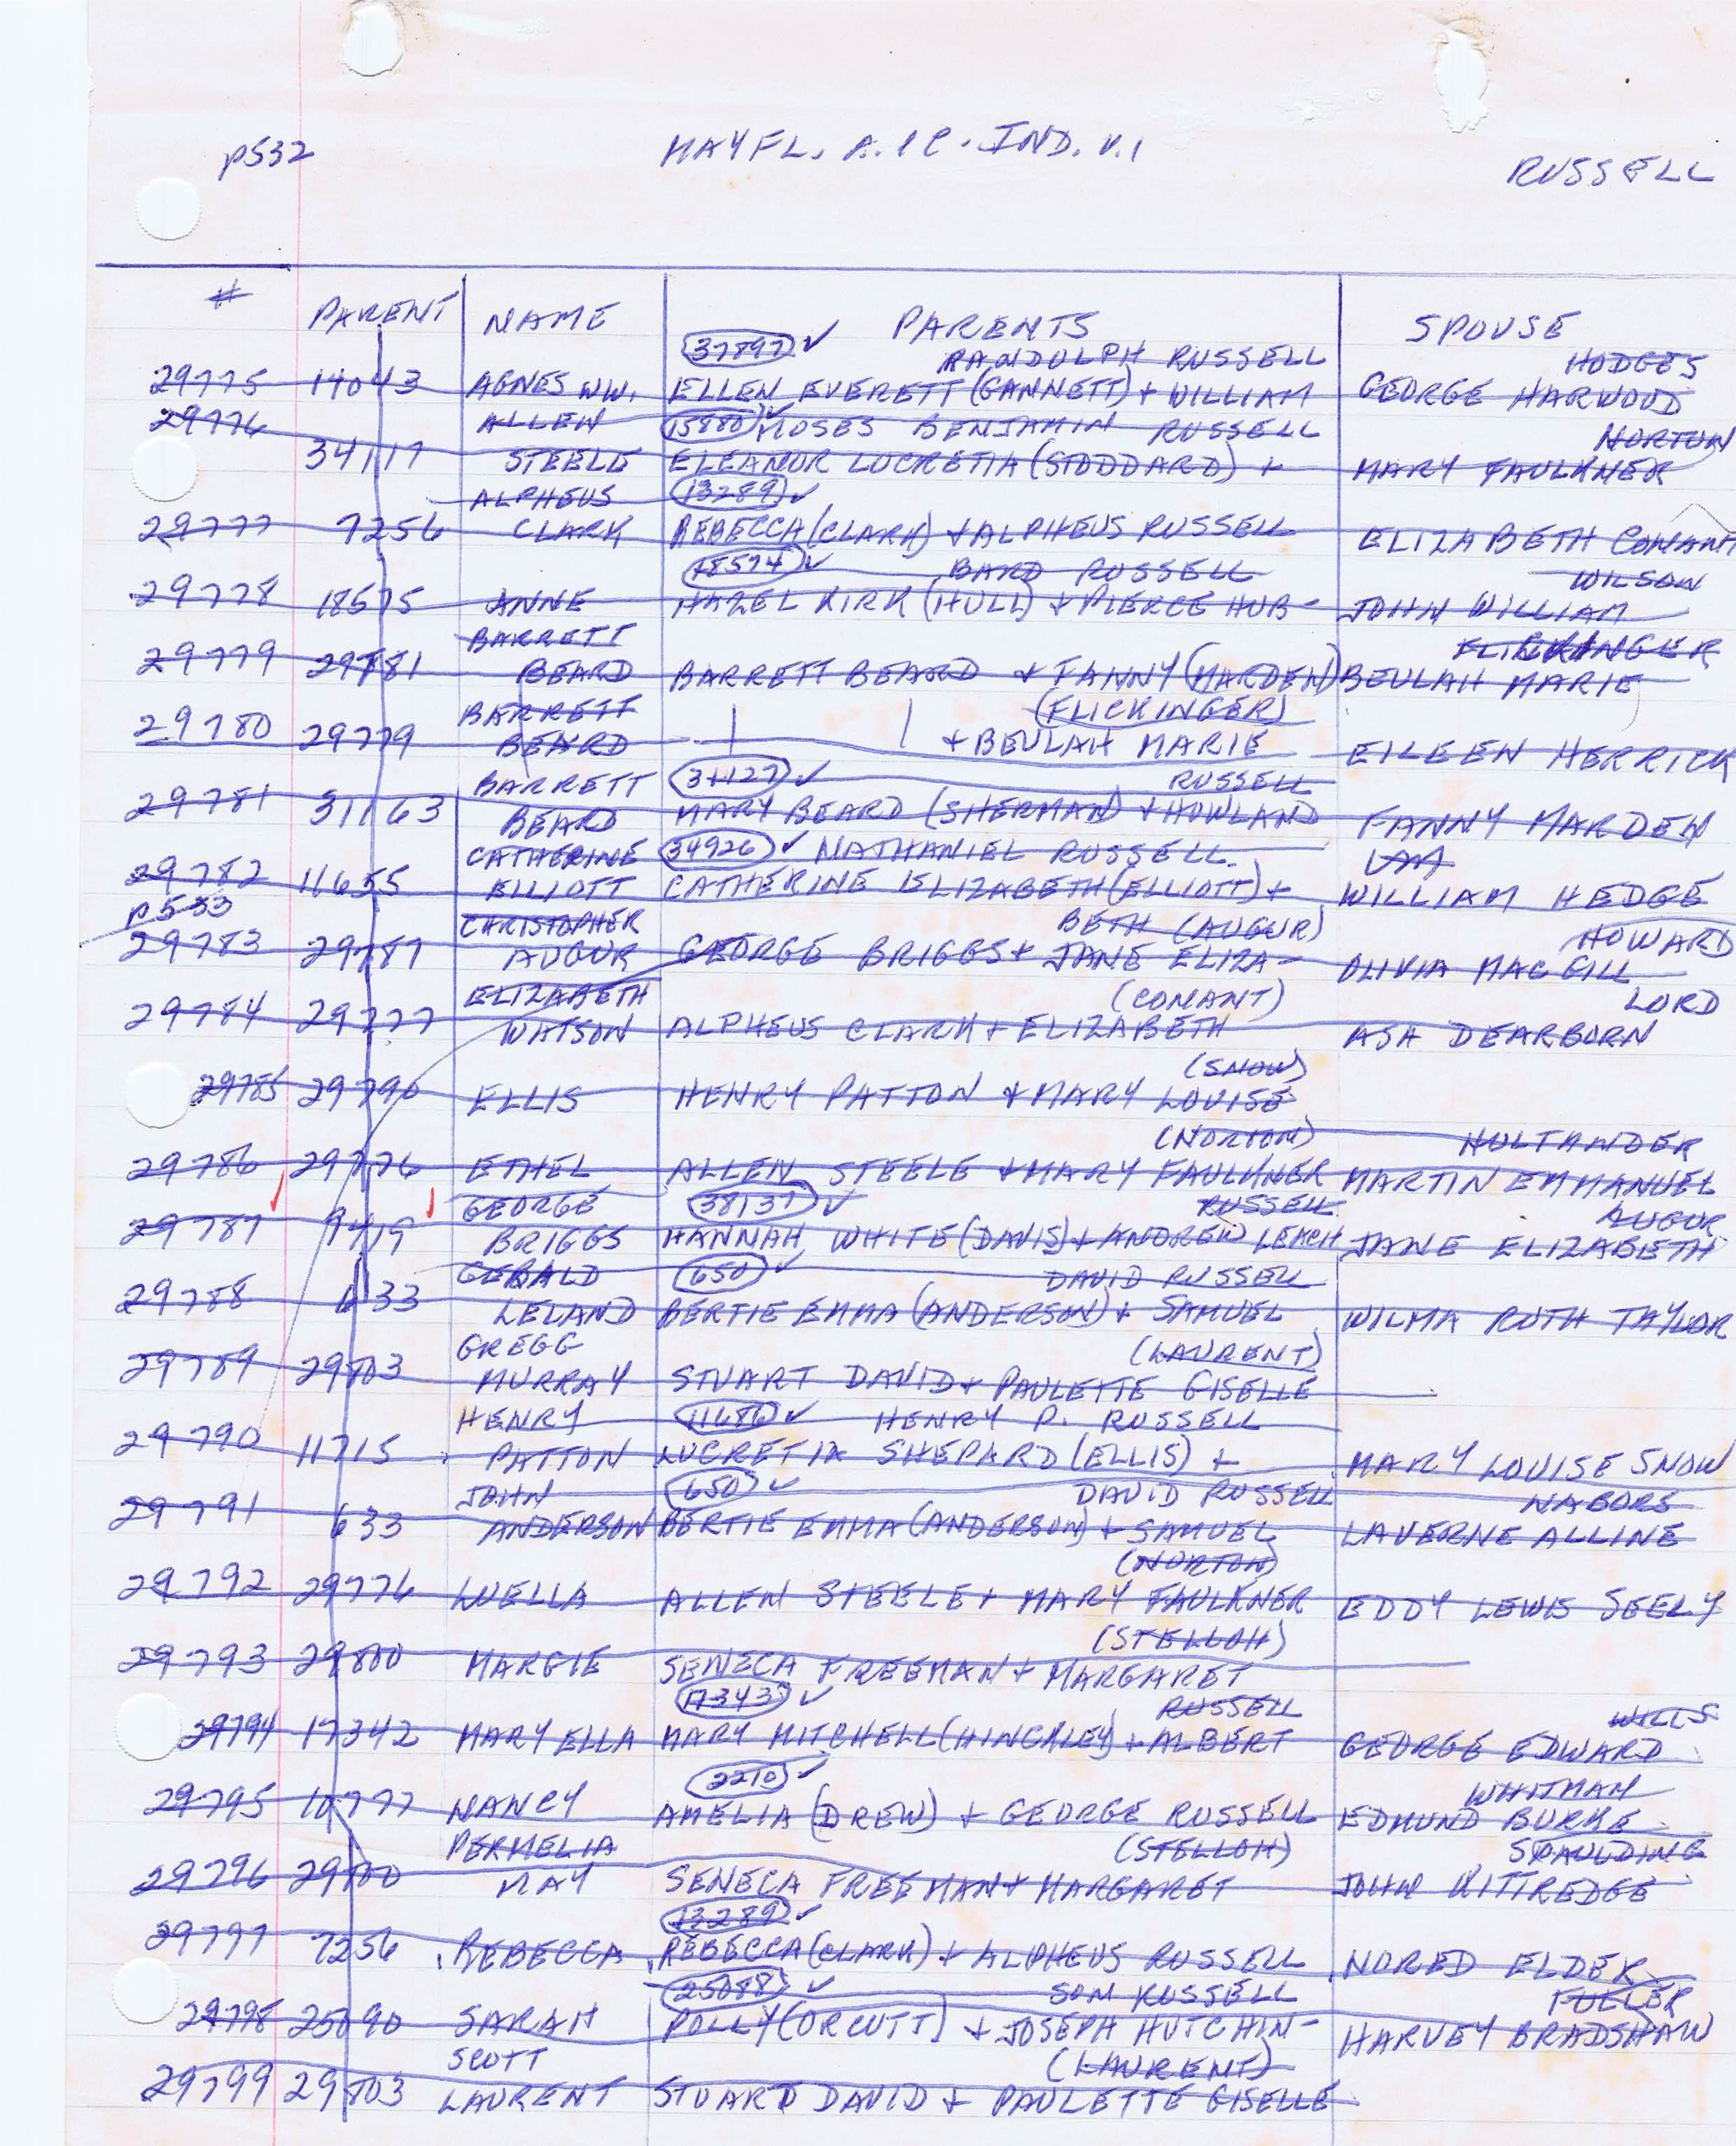 p532 MAYFL. A. & C. IND. V.1 RUSSELL
# PARENT NAME PARENTS SPOUSE
37897 ✓ RANDOLPH RUSSELL HODGES
29775 14043 AGNES WW. ELLEN EVERETT (GANNETT) + WILLIAM GEORGE HARWOOD
29776 ALLEN 15880 ✓ MOSES BENJAMIN RUSSELL NORTON
34117 STEELE ELEANOR LUCRETIA (STODDARD) + MARY FAULKNER
ALPHEUS 13289 ✓
29777 7256 CLARK REBECCA (CLARK) + ALPHEUS RUSSELL ELIZABETH CONANT
18574 ✓ BARD RUSSELL WILSON
29778 18575 ANNE HAZEL KIRK (HULL) + PIERCE HUB- JOHN WILLIAM
BARRETT FLICKINGER
29779 29781 BEARD BARRETT BEARD + FANNY (MARDEN) BEULAH MARIE
BARRETT (FLICKINGER)
29780 29779 BEARD | | + BEULAH MARIE EILEEN HERRICK
BARRETT 31127 ✓ RUSSELL
29781 31163 BEARD MARY BEARD (SHERMAN) + HOWLAND FANNY MARDEN
CATHERINE 34926 ✓ NATHANIEL RUSSELL
29782 11655 ELLIOTT CATHERINE ELIZABETH (ELLIOTT) + WILLIAM HEDGE
p533 CHRISTOPHER BETH (AUGUR) HOWARD
29783 29787 AUGUR GEORGE BRIGGS + JANE ELIZA- OLIVIA MACGILL
ELIZABETH (CONANT) LORD
29784 29777 WATSON ALPHEUS CLARK + ELIZABETH ASA DEARBORN
(SNOW)
29785 29790 ELLIS HENRY PATTON + MARY LOUISE
(NORTON) HULTANDER
29786 29776 ETHEL ALLEN STEELE + MARY FAULKNER MARTIN EMMANUEL
GEORGE 38137 ✓ RUSSELL AUGUR
29787 9419 BRIGGS HANNAH WHITE (DAVIS) + ANDREW LEACH JANE ELIZABETH
GERALD 650 ✓ DAVID RUSSELL
29788 633 LELAND BERTIE EMMA (ANDERSON) + SAMUEL WILMA RUTH TAYLOR
GREGG (LAURENT)
29789 29803 MURRAY STUART DAVID + PAULETTE GISELLE
HENRY 11686 ✓ HENRY P. RUSSELL
29790 11715 PATTON LUCRETIA SHEPARD (ELLIS) + MARY LOUISE SNOW
JOHN 650 ✓ DAVID RUSSELL NABORS
29791 633 ANDERSON BERTIE EMMA (ANDERSON) + SAMUEL LAVERNE ALLINE
(NORTON)
29792 29776 LUELLA ALLEN STEELE + MARY FAULKNER EDDY LEWIS SEELY
(STELLOH)
29793 29800 MARGIE SENECA FREEMAN + MARGARET
17343 ✓ RUSSELL WILLS
29794 17342 MARY ELLA MARY MITCHELL (HINCKLEY) + ALBERT GEORGE EDWARD
2210 ✓ WHITMAN
29795 10777 NANCY AMELIA (DREW) + GEORGE RUSSELL EDMUND BURKE
PERMELIA (STELLOH) SPAULDING
29796 29800 MAY SENECA FREEMAN + MARGARET JOHN KITTREDGE
13289 ✓
29797 7256 REBECCA REBECCA (CLARK) + ALPHEUS RUSSELL NORED ELDER
25088 ✓ SON RUSSELL FULLER
29798 25090 SARAH POLLY (ORCUTT) + JOSEPH HUTCHIN- HARVEY BRADSHAW
SCOTT (LAURENT)
29799 29803 LAURENT STUART DAVID + PAULETTE GISELLE